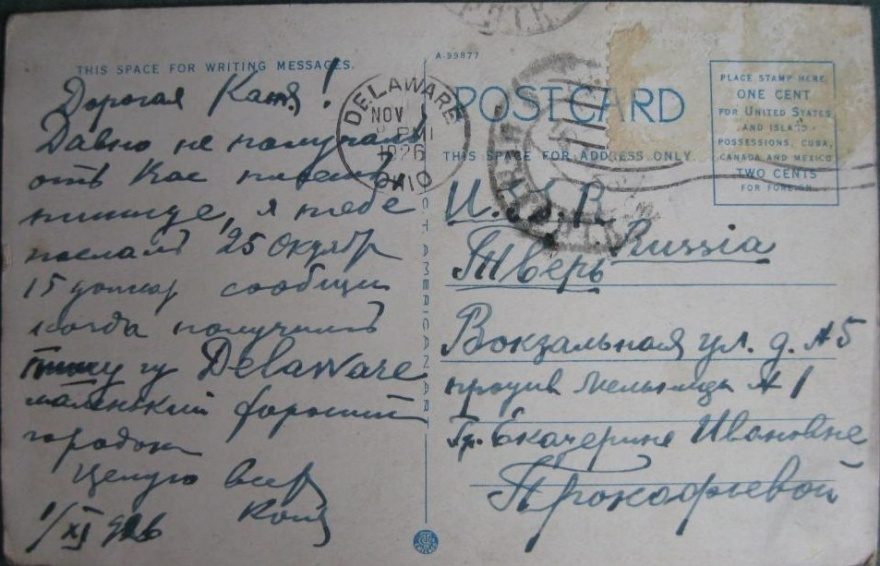 THIS SPACE FOR WRITING MESSAGES.
Дорогая Катя!
Давно не получал
отъ Вас писемъ
пишите, я тебе
послалъ 25 Октябр
15 долар сообщи
когда получишъ
пишу из Delaware
маленький хороший
городок
Целую всех
Коля
1/XI 926
DELAWARE
NOV
1926
OHIO
A-99877
POSTCARD
THIS SPACE FOR ADDRESS ONLY.
PLACE STAMP HERE
ONE CENT
FOR UNITED STATES
AND ISLAND
POSSESSIONS, CUBA,
CANADA AND MEXICO
TWO CENTS
FOR FOREIGN
Russia
Тверь
Вокзальная ул. д. № 5
против Мельницы № 1
Гр. Екатерине Ивановне
Прокофьевой